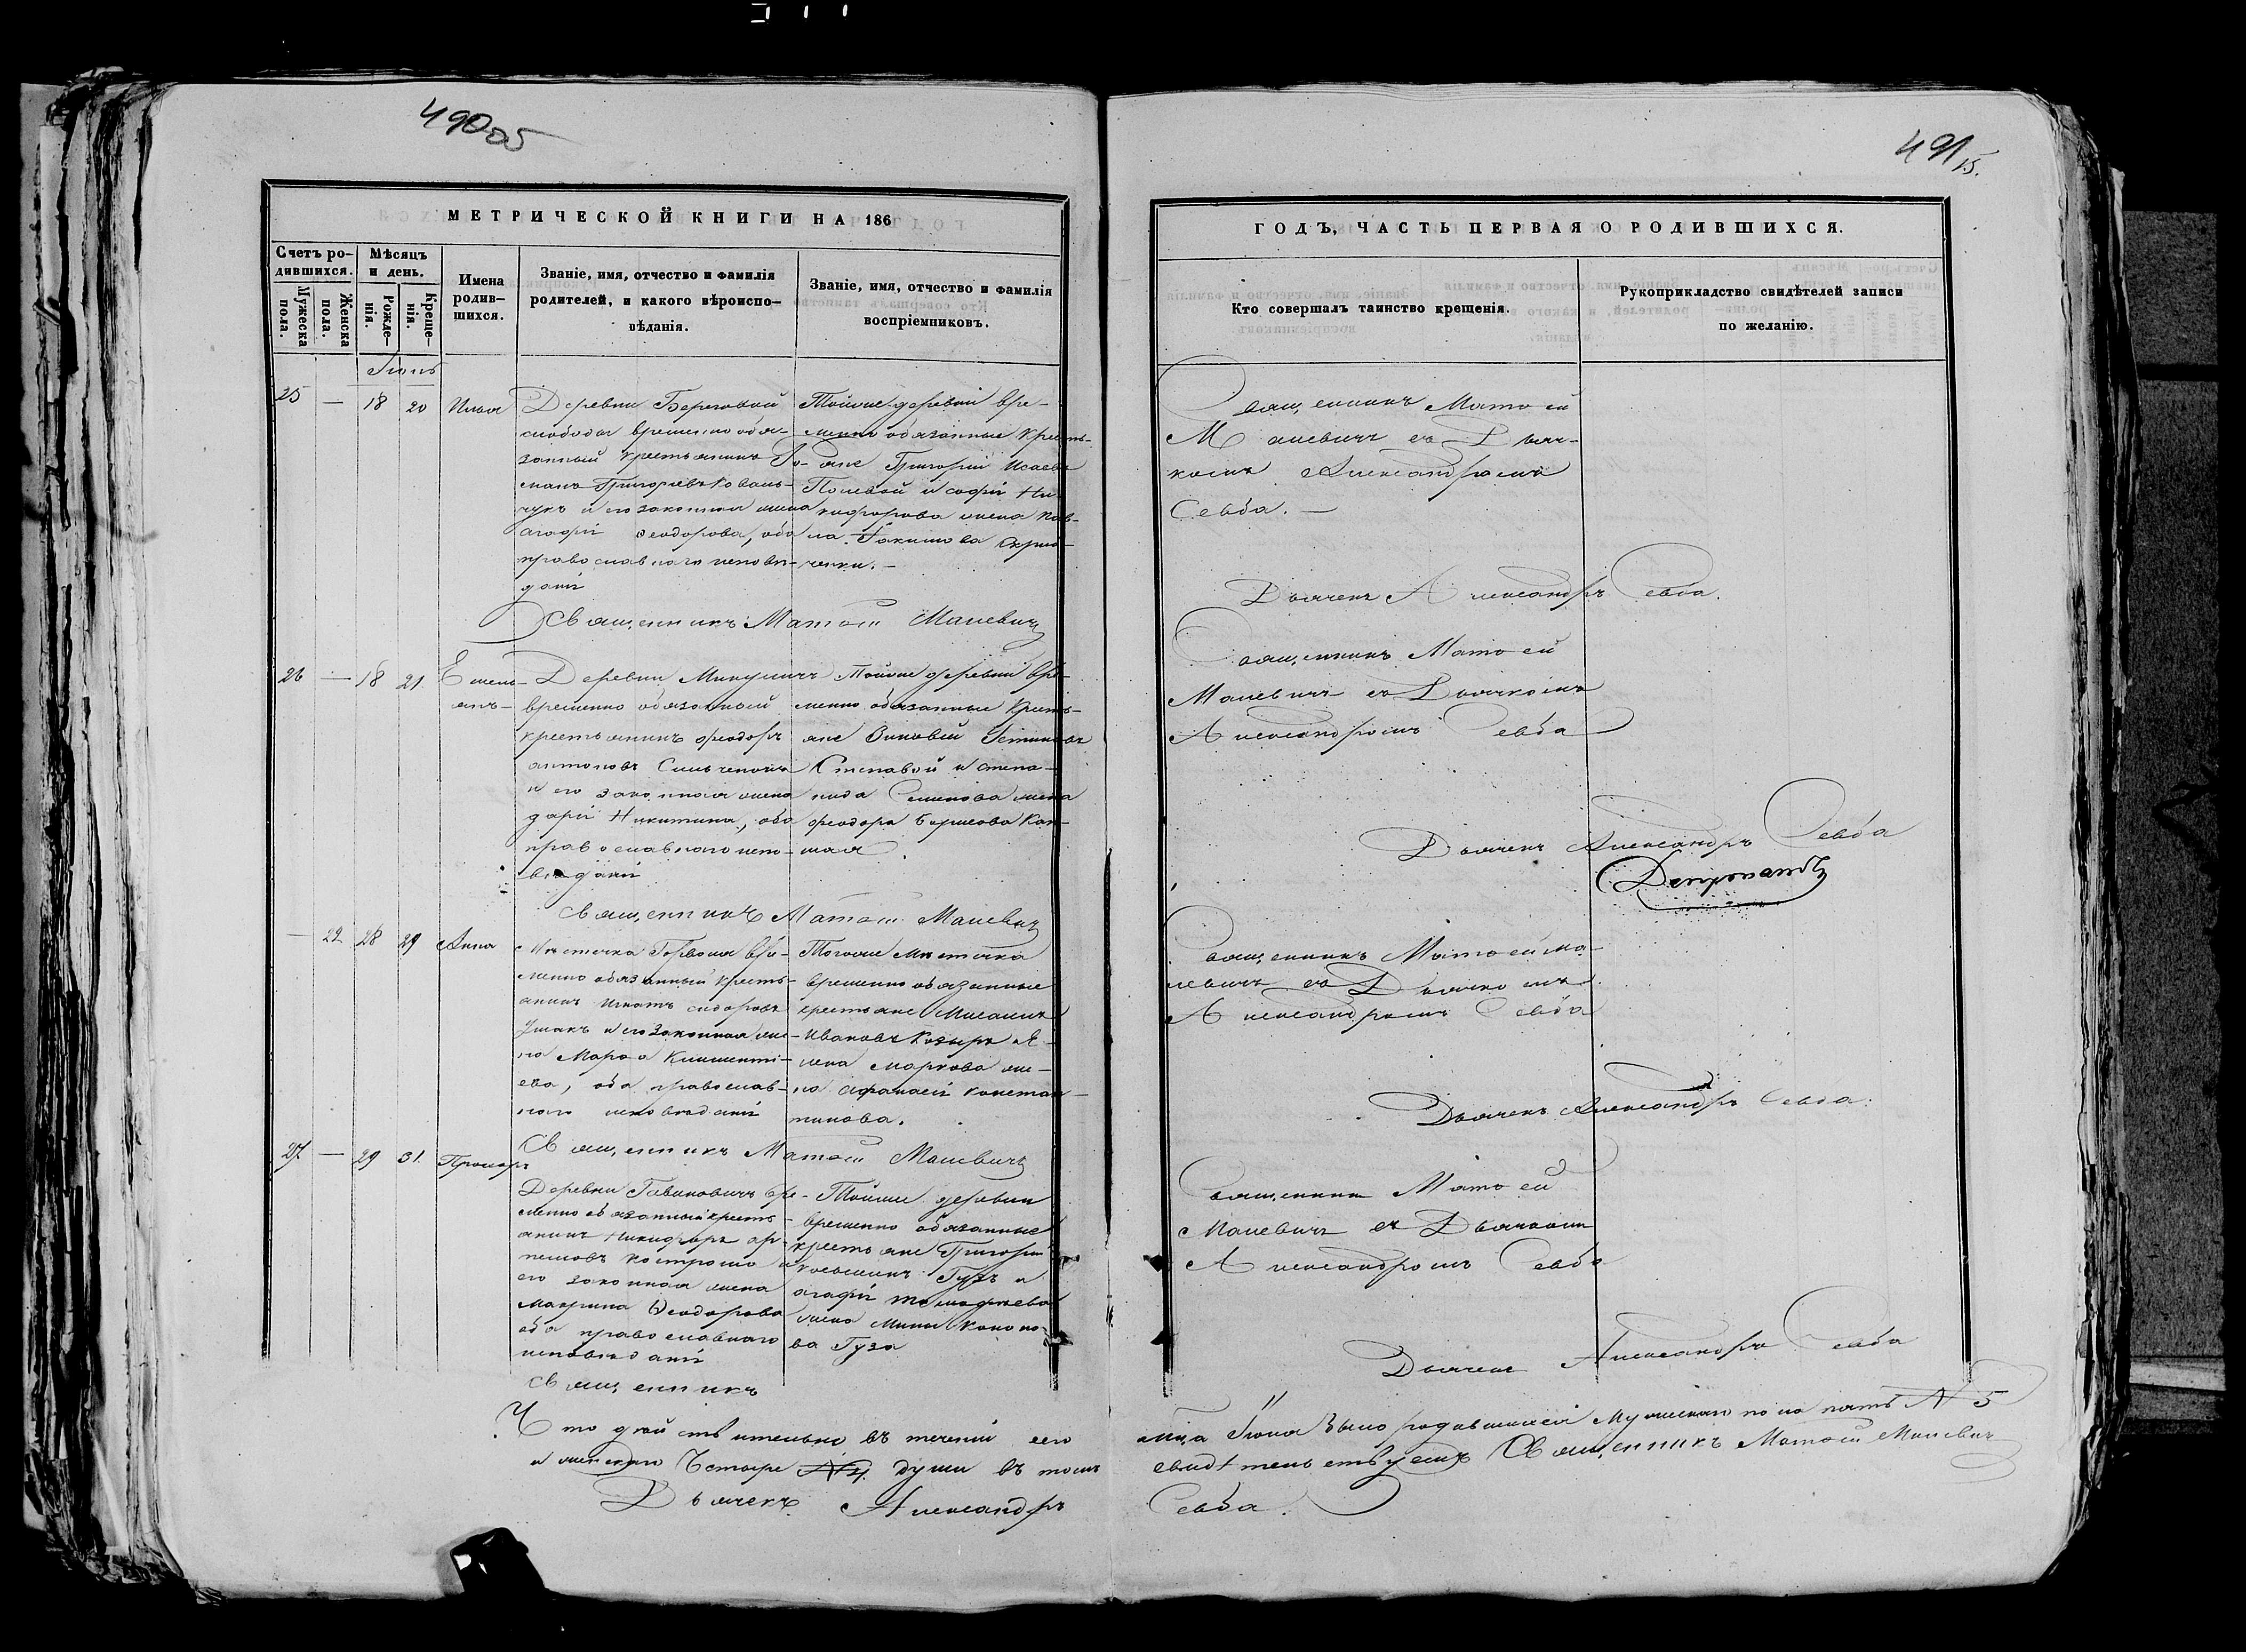 49005
491 15.
МЕТРИЧЕСКОЙ КНИГИ НА 186
Счетъ ро-
дившихся.
Мужеска
пола.
Женска
пола.
Мѣсяцъ
и день.
Рожде-
нія.
Креще-
нія.
Имена
родив-
шихся.
Званіе, имя, отчество и фамилія
родителей, и какого вѣроиспо-
вѣданія.
Званіе, имя, отчество и фамилія
воспріемниковъ.
25 — 18 20
Деревни Береговой
слободы временно обя-
занный крестьянинъ Ро-
манъ Григорьевъ Коваль-
чукъ и его законная жена
православнаго исповѣ-
данія
Тойже деревни вре-
менно обязанные кресть-
яне Григорій Исаевъ
Полевой и Софія Ни-
кифорова жена Пав-
ла
Священникъ Матѳей Малевичъ
26 — 18 21
Емель-
янъ
Деревни Микуличъ
временно обязанный
крестьянинъ Феодоръ
антоновъ
и его законная жена
дарія Никитина, оба
православнаго испо-
вѣданія
Тойже деревни вре-
менно обязанные кресть-
яне Зиновій
и степа-
нида Семенова жена
феодора Борисова
Священникъ Матѳей Малевичъ
— 22 28 29 Анна
Мѣстечка Горволя вре-
менно обязанный кресть-
янинъ Игнатъ сидоровъ
Ушакъ и его законная же-
на Марѳа Климентіе-
ева, оба православ-
наго исповѣданія
Тогоже мѣстечка
временно обязанные
крестьяне Михаилъ
Ивановъ Козырь и Е-
лена маркова же-
на Афанасія констан-
тинова.
Священникъ Матѳей Малевичъ
27 — 29 31. Прохоръ
Деревни Гавиновичъ вре-
менно обязанный кресть-
янинъ Никифоръ ар-
темовъ костромa и
его законная жена
Макрина Ѳеодорова
оба православнаго
исповѣданія
Тойже деревни
временно обязанные
крестьяне Григорій
Косьминъ Гузъ и
агафія тимофѣева
жена Мины Кононо-
ва Гуза
Священникъ
Что дѣйствительно въ теченіи сего
и женскаго Четыре №4. души въ томъ
Дьячекъ Александръ
ГОДЪ, ЧАСТЬ ПЕРВАЯ О РОДИВШИХСЯ.
Кто совершалъ таинство крещенія.
Рукоприкладство свидѣтелей записи
по желанію.
Священникъ Матѳей
Малевичъ съ Дьяч-
комъ Александромъ
Севба.
Дьячекъ Александръ Севба.
Священникъ Матѳей
Малевичъ съ Дьячкомъ
Александромъ Севба
Дьячекъ Александръ Севба
Священникъ Матѳей Ма-
левичъ съ Дьячкомъ
Александромъ Севба
Дьячекъ Александръ Севба.
Священникъ Матѳей
Малевичъ съ Дьячкомъ
Александромъ Севба
Дьячекъ Александръ Севба
было родившихся Мужескаго пола пять № 5
свидѣтельствуемъ Священникъ Матѳей Малевичъ
Севба.